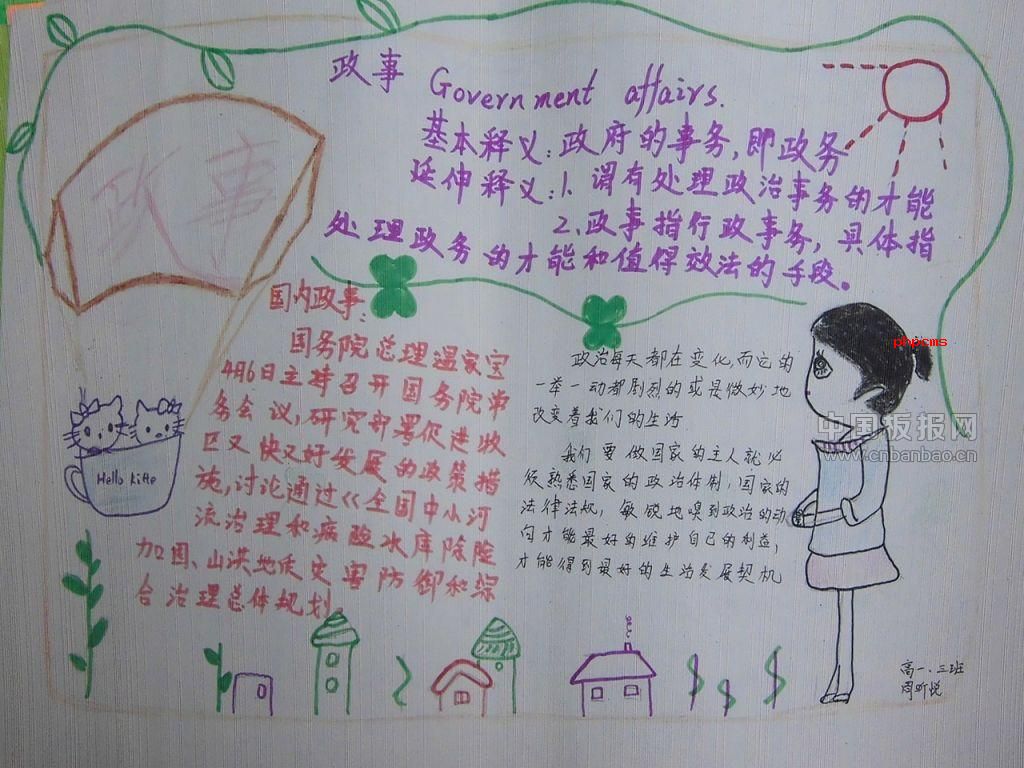 政事 Government affairs.
基本释义:政府的事务,即政务
延伸释义:1.谓有处理政治事务的才能
2.政事指行政事务,具体指
处理政务的才能和值得效法的手段。
政事
国内政事:
国务院总理温家宝
4月6日主持召开国务院常
务会议,研究部署促进牧
区又快又好发展的政策措
施,讨论通过《全国中小河
流治理和病险水库除险
加固、山洪地质灾害防御和综
合治理总体规划。
Hello kitte
政治每天都在变化,而它的
一举一动都剧烈的或是微妙地
改变着我们的生活
我们要做国家的主人就必
须熟悉国家的政治体制,国家的
法律法规,敏锐地嗅到政治的动
向才能最好的维护自己的利益,
才能得到最好的生活发展契机
phpcms
中国板报网
www.cnbanbao.cn
高一.三班